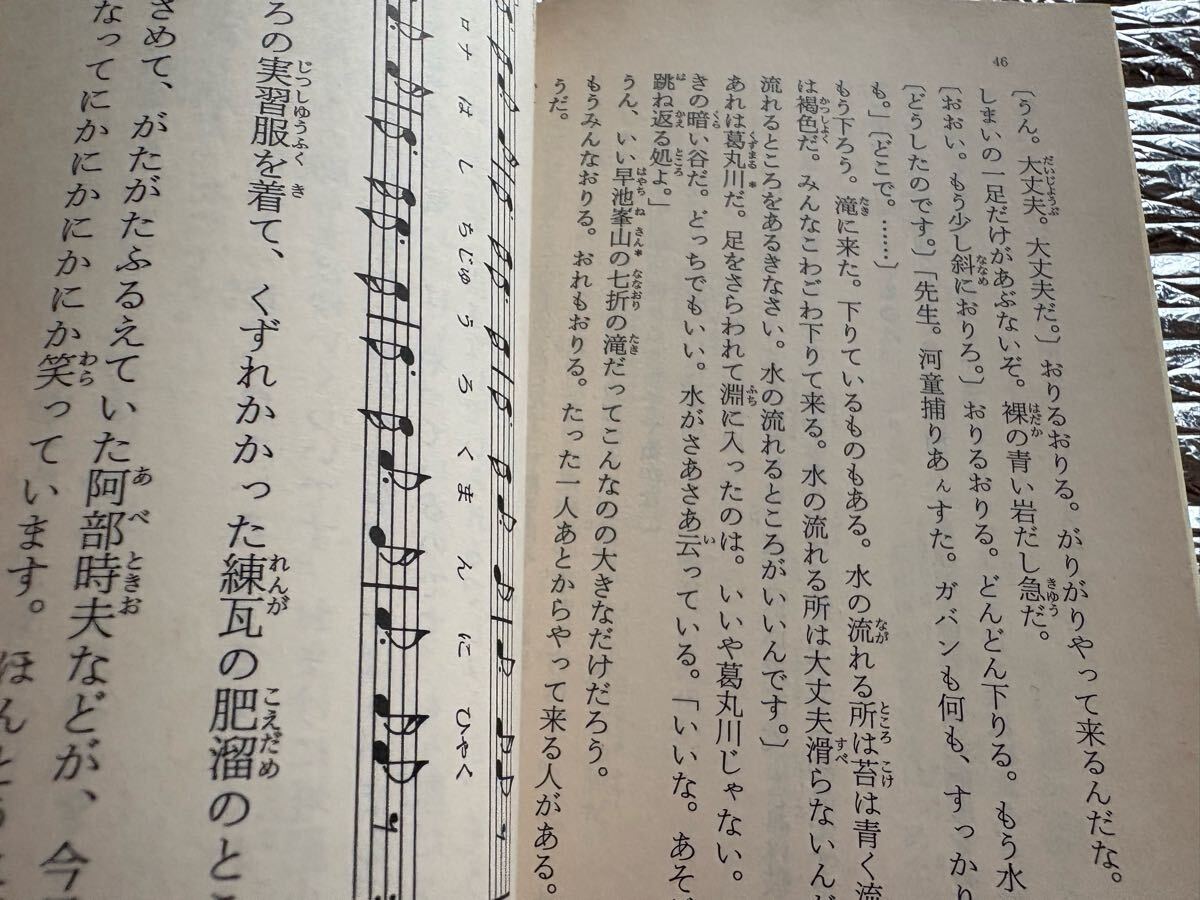 46
〔うん。大丈夫。大丈夫だ。〕おりるおりる。がりがりやって来るんだな。
しまいの一足だけがあぶないぞ。裸の青い岩だし急だ。
〔おおい。もう少し斜におりろ。〕おりるおりる。どんどん下りる。もう水
〔どうしたのです。〕〔先生。河童捕りあぇすた。ガバンも何も、すっかり
も。」〔どこで。……〕
もう下ろう。滝に来た。下りているものもある。水の流れる所は苔は青く流
は褐色だ。みんなこわごわ下りて来る。水の流れる所は大丈夫滑らないんだ
流れるところをあるきなさい。水の流れるところがいいんです。〕
あれは葛丸川だ。足をさらわれて淵に入ったのは。いいや葛丸川じゃない。
きの暗い谷だ。どっちでもいい。水がさあさあ云っている。「いいな。あそ
跳ね返る処よ。」
うん、いい早池峯山の七折の滝だってこんなのの大きなだけだろう。
もうみんなおりる。おれもおりる。たった一人あとからやって来る人がある。
うだ。
ロナ は し ちじゅ う ろ く ま ん に ひゃく
ろの実習服を着て、くずれかかった練瓦の肥溜のとこ
さめて、がたがたふるえていた阿部時夫などが、今
なってにかにかにかにか笑っています。ほんとうに